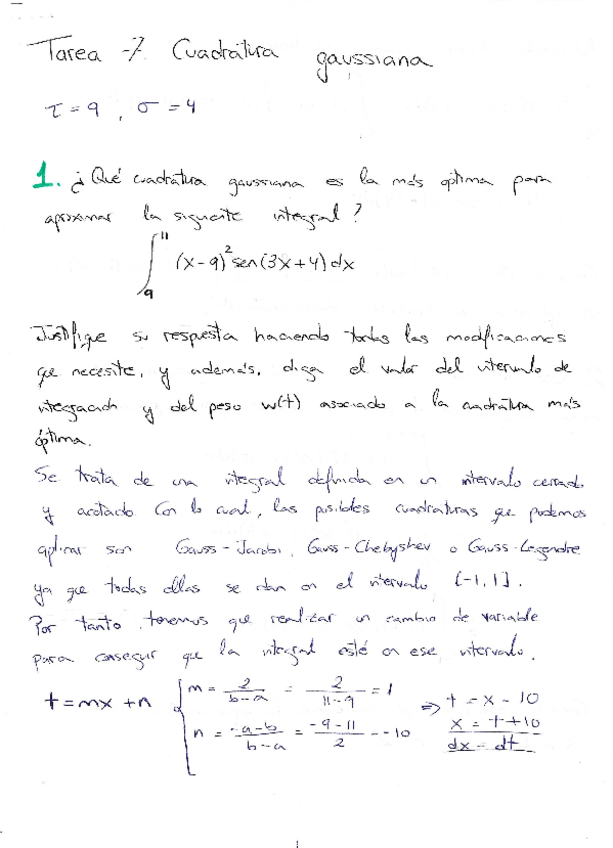 Tarea -7. Cuadratura gaussiana
τ = 9 , σ = 4
1. ¿Qué cuadratura gaussiana es la más optima para
aproximar la siguiente integral?
∫₉¹¹ (x-9)² sen(3x+4) dx
Justifique su respuesta haciendo todas las modificaciones
que necesite, y además, diga el valor del intervalo de
integración y del peso w(t) asociado a la cuadratura más
óptima.
Se trata de una integral definida en un intervalo cerrado
y acotado. Con lo cual, las posibles cuadraturas que podemos
aplicar son Gauss-Jacobi, Gauss-Chebyshev o Gauss-Legendre
ya que todas ellas se dan en el intervalo [-1, 1].
Por tanto, tenemos que realizar un cambio de variable
para conseguir que la integral esté en ese intervalo.
t = mx + n { m = 2/(b-a) = 2/(11-9) = 1 ⇒ t = x - 10
n = (-a-b)/(b-a) = (-9-11)/2 = -10 x = t + 10
dx = dt